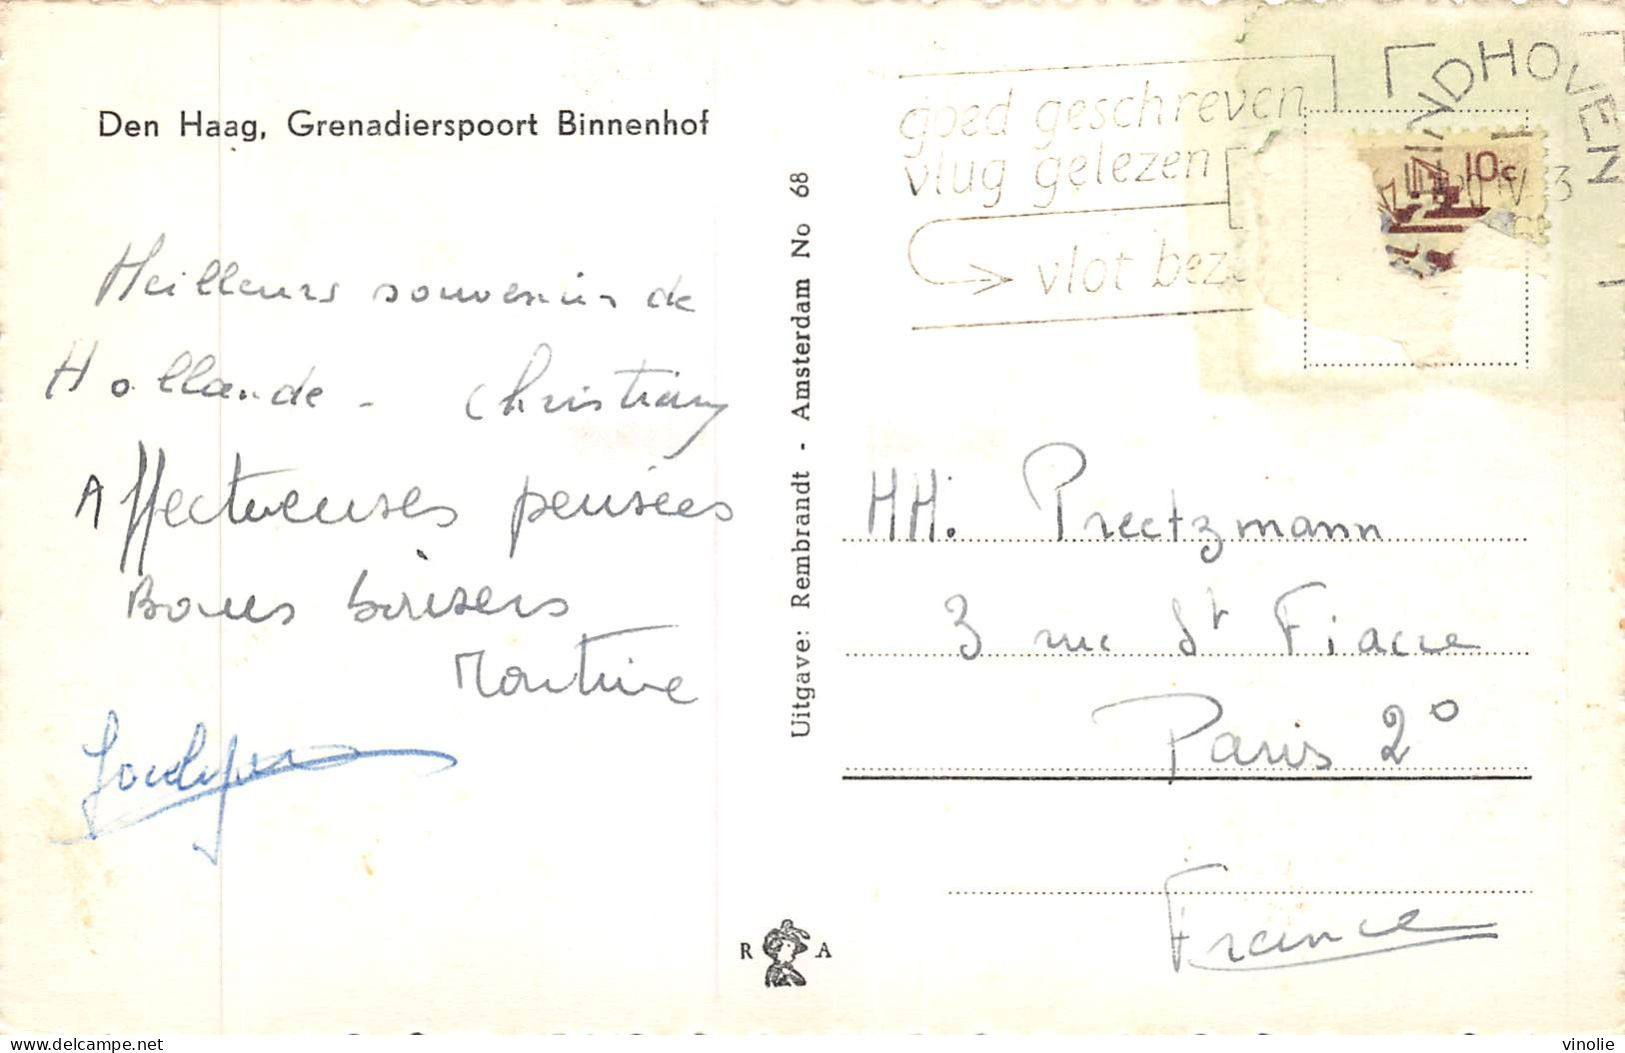 Den Haag, Grenadierspoort Binnenhof
Meilleurs souvenirs de
Hollande - Christiany
Affectueuses pensées
Bons baisers
Martine
Uitgave: Rembrandt - Amsterdam No 68
R A
goed geschreven
vlug gelezen
vlot bez
EINDHOVEN
10c
MM. Preetzmann
3 rue St Fiacre
Paris 2°
France
www.delcampe.net
vinolie